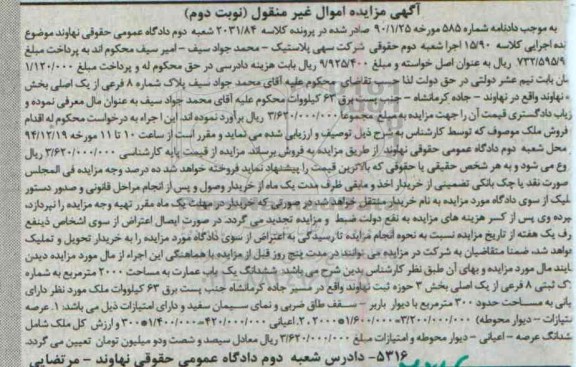 آگهی مزایده اموال غیر منقول (نوبت دوم)
به موجب دادنامه شماره ۵۸۵ مورخه ۹۰/۱/۲۵ صادر شده در پرونده کلاسه ۲۰۳۱/۸۴ شعبه دوم دادگاه عمومی حقوقی نهاوند موضوع
نده اجرایی کلاسه ۱۵/۹۰ اجرا شعبه دوم حقوقی شرکت سهی پلاستیک - محمد جواد سیف - امیر سیف محکوم اند به پرداخت مبلغ
۷۳۲/۵۹۵/۹ ریال به عنوان اصل خواسته و مبلغ ۹/۹۲۵/۴۰۰ ریال بابت هزینه دادرسی در حق محکوم له و پرداخت مبلغ ۱/۱۲۰/۰۰۰
یان بابت نیم عشر دولتی در حق دولت لذا حسب تقاضای محکوم علیه آقای محمد جواد سیف پلاک شماره ۸ فرعی از یک اصلی بخش
نهاوند واقع در نهاوند - جاده کرمانشاه - جنب پست برق ۶۳ کیلووات محکوم علیه آقای محمد جواد سیف به عنوان مال معرفی نموده و
زیاب دادگستری قیمت آن را جهت مزایده به مبلغ مجموعا ۳/۶۲۰/۰۰۰/۰۰۰ ریال برآورد نموده اند این اجراء به درخواست محکوم له اقدام
فروش ملک موصوف که توسط کارشناس به شرح ذیل توصیف و ارزیابی شده می نماید و مقرر است از ساعت ۱۰ تا ۱۱ مورخه ۹۴/۱۲/۱۹
محل شعبه دوم دادگاه عمومی حقوقی نهاوند از طریق مزایده به فروش برساند مزایده از قیمت پایه کارشناسی ۳/۶۲۰/۰۰۰/۰۰۰ ریال
وع می شود و به هر شخص حقیقی یا حقوقی که بالاترین قیمت را پیشنهاد نماید فروخته خواهد شد ده درصد وجه مزایده فی المجلس
صورت نقد یا چک بانکی تضمینی از خریدار اخذ و مابقی ظرف مدت یک ماه از خریدار وصول و پس از انجام مراحل قانونی و صدور دستور
ملیک از سوی دادگاه مورد مزایده به نام خریدار منتقل خواهد شد در صورتی که خریدار در مهلت یک ماه مقرر تهیه وجه مزایده را نپردازد،
پرده وی پس از کسر هزینه های مزایده به نفع دولت ضبط و مزایده تجدید می گردد. در صورت ایصال اعتراض از سوی اشخاص ذینفع
رف یک هفته از تاریخ مزایده نسبت به نحوه انجام مزایده تا رسیدگی به اعتراض از سوی دادگاه مورد مزایده را به خریدار تحویل و تملیک
واهد شد، ضمنا متقاضیان به شرکت در مزایده می توانند در مدت پنج روز قبل از مزایده با هماهنگی این اجراء از مال مورد مزایده دیدن
ایند مال مورد مزایده و بهای آن طبق نظر کارشناس بدین شرح می باشد: ششدانگ یک باب عمارت به مساحت ۲۰۰۰ مترمربع به شماره
لاک ثبتی ۸ فرعی از یک اصلی بخش ۳ حوزه ثبت نهاوند واقع در مسیر جاده کرمانشاه جنب پست برق ۶۳ کیلووات ملک مورد نظر دارای
یانی به مساحت حدود ۳۰۰ مترمربع با دیوار باربر - سقف طاق ضربی و نمای سیمان سفید و دارای امتیازات ذیل می باشد: ۱. عرصه
۲۰۰۰*۱/۶۰۰/۰۰۰=۳/۲۰۰/۰۰۰/۰۰۰ ۲. اعیانی ۴۲۰/۰۰۰/۰۰۰=۱/۴۰۰/۰۰۰*۳۰۰ و ارزش کل ملک شامل (امتیازات - دیوار محوطه)
شدانگ عرصه - اعیانی - دیوار محوطه و امتیازات مبلغ ۳/۶۲۰/۰۰۰/۰۰۰ ریال معادل سیصد و شصت ودو میلیون تومان تعیین می گردد.
۵۳۱۶- دادرس شعبه دوم دادگاه عمومی حقوقی نهاوند - مرتضایی